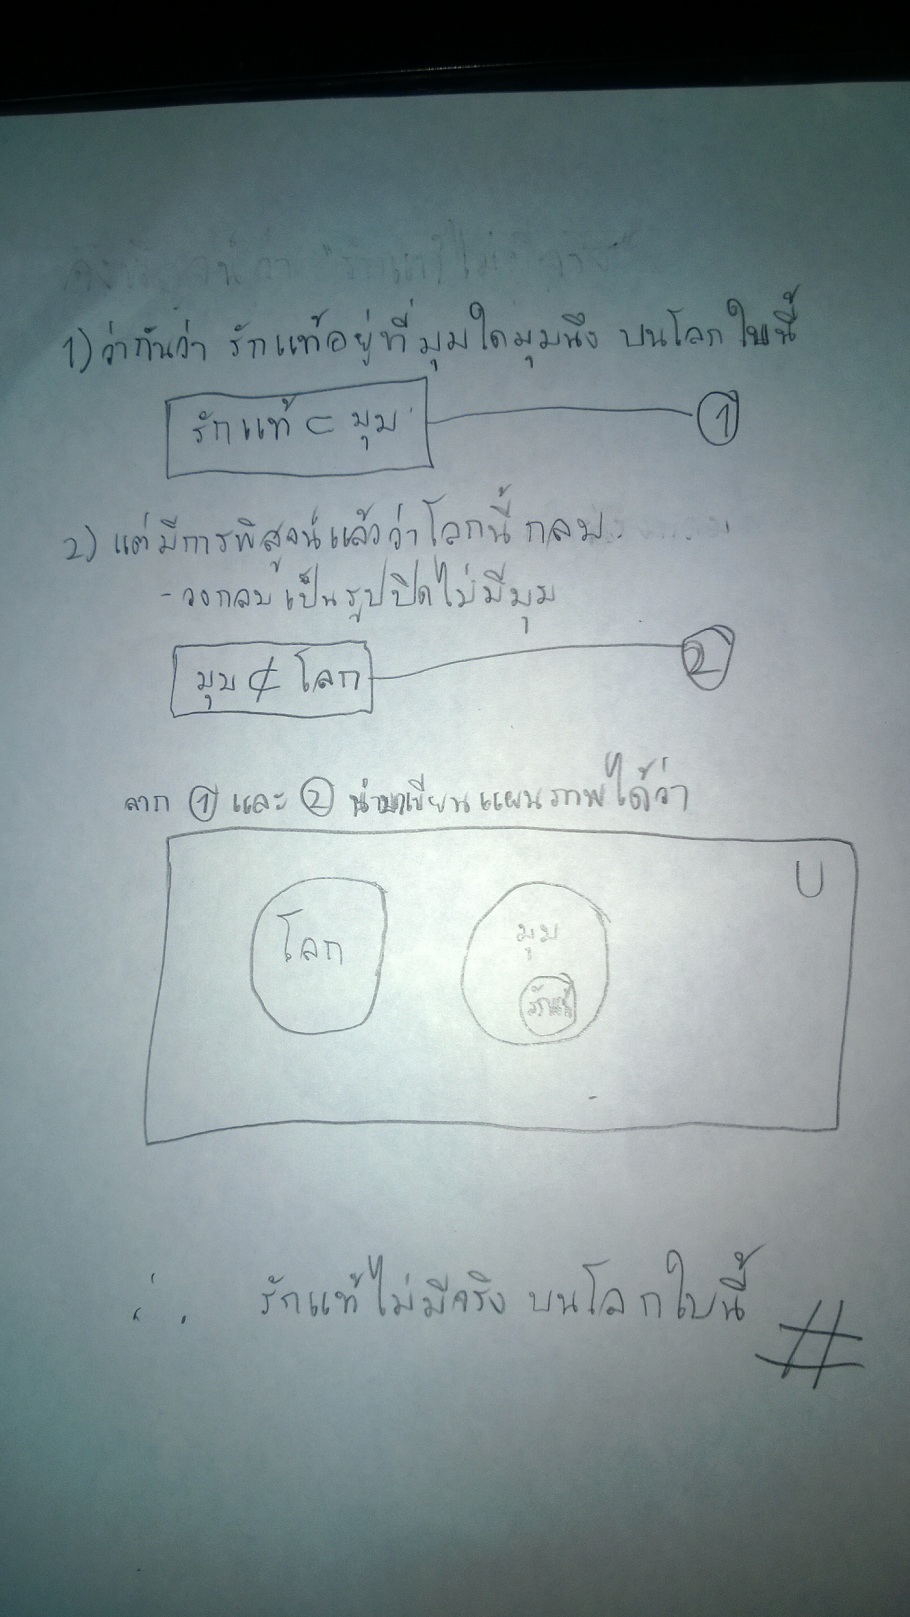 1) ว่ากันว่า รักแท้อยู่ที่มุมใดมุมนึง บนโลกใบนี้
รักแท้ ⊂ มุม ①
2) แต่มีการพิสูจน์แล้วว่าโลกนี้ กลม
- วงกลม เป็นรูปปิดไม่มีมุม
มุม ⊄ โลก ②
จาก ① และ ② นำมาเขียนแผนภาพได้ว่า
U
โลก มุม
รักแท้
∴ รักแท้ไม่มีจริง บนโลกใบนี้ #